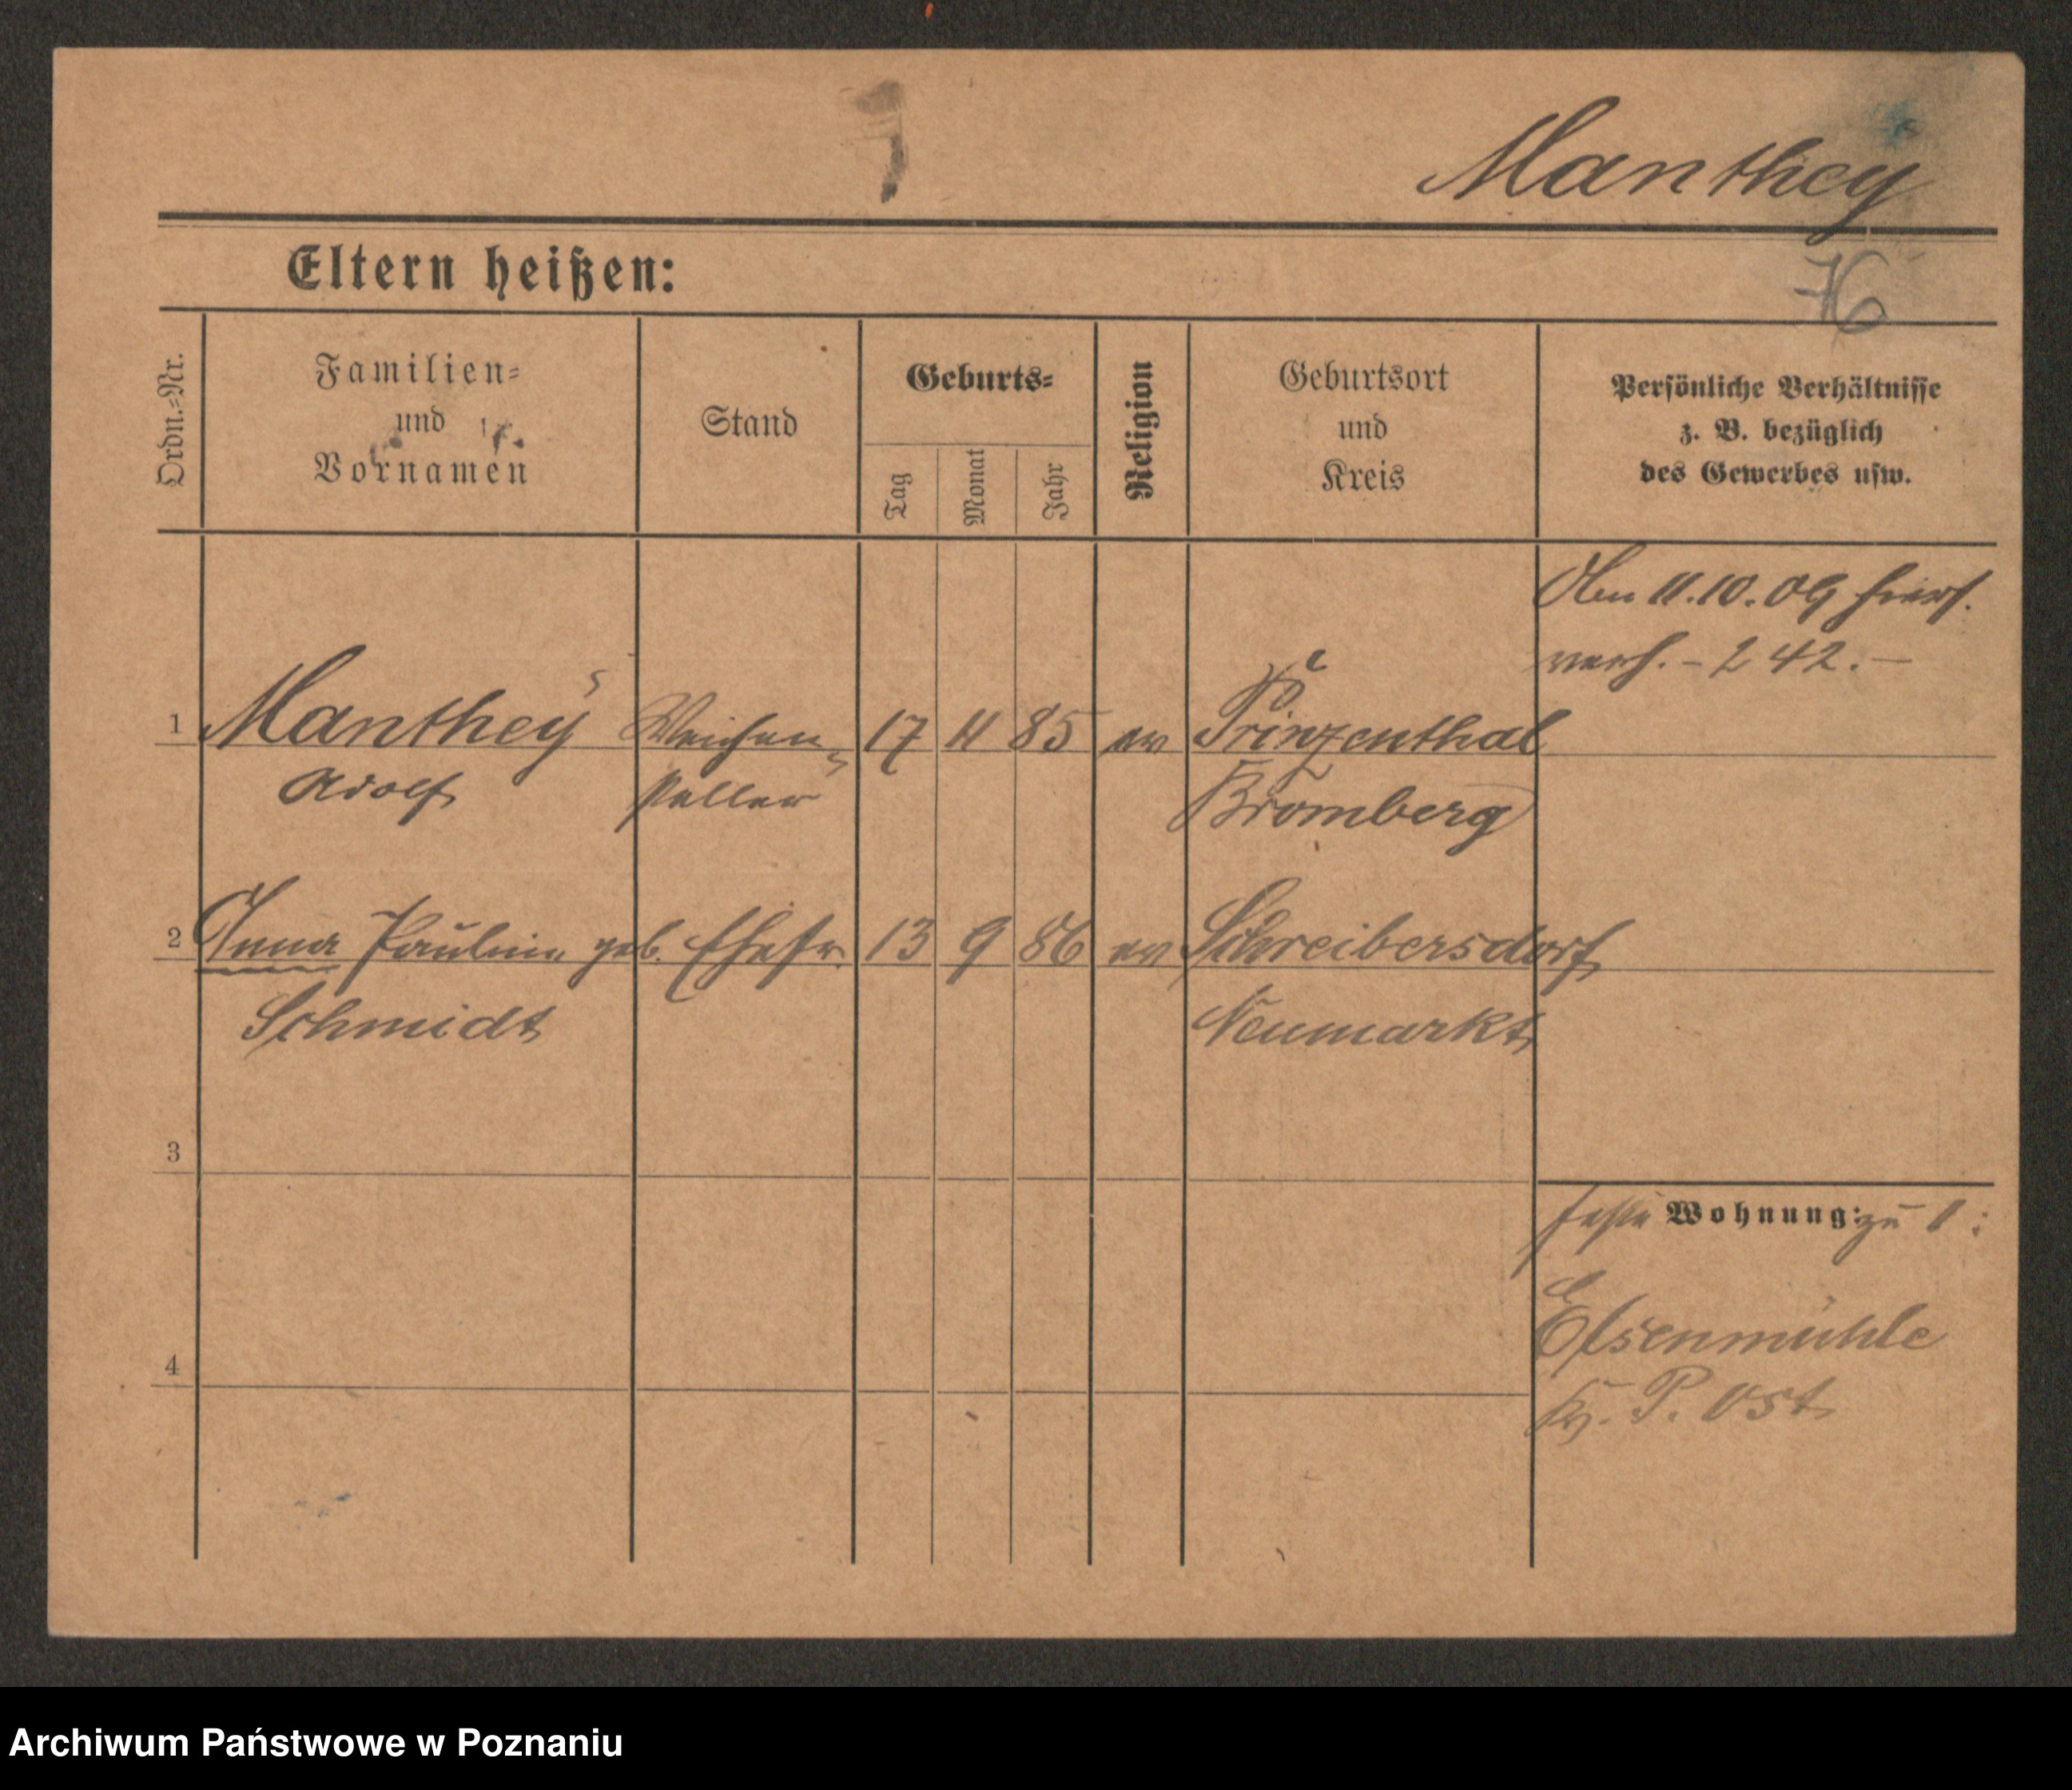 Manthey
Eltern heißen:
76
Ordn.-Nr.
Familien-
und
Vornamen
Stand
Geburts-
Tag
Monat
Jahr
Religion
Geburtsort
und
Kreis
Persönliche Verhältnisse
z. B. bezüglich
des Gewerbes usw.
11.10.09
verh. – 242. –
1 Manthey Weichen- 17 11 85 ev Prinzenthal
Adolf steller Bromberg
2 Anna Pauline geb. Ehefr. 13 9 86 ev Schreibersdorf
Schmidt Neumarkt
3
feste Wohnung: zu 1:
Elsenmühle
4
Kr. P. Ost
Archiwum Państwowe w Poznaniu